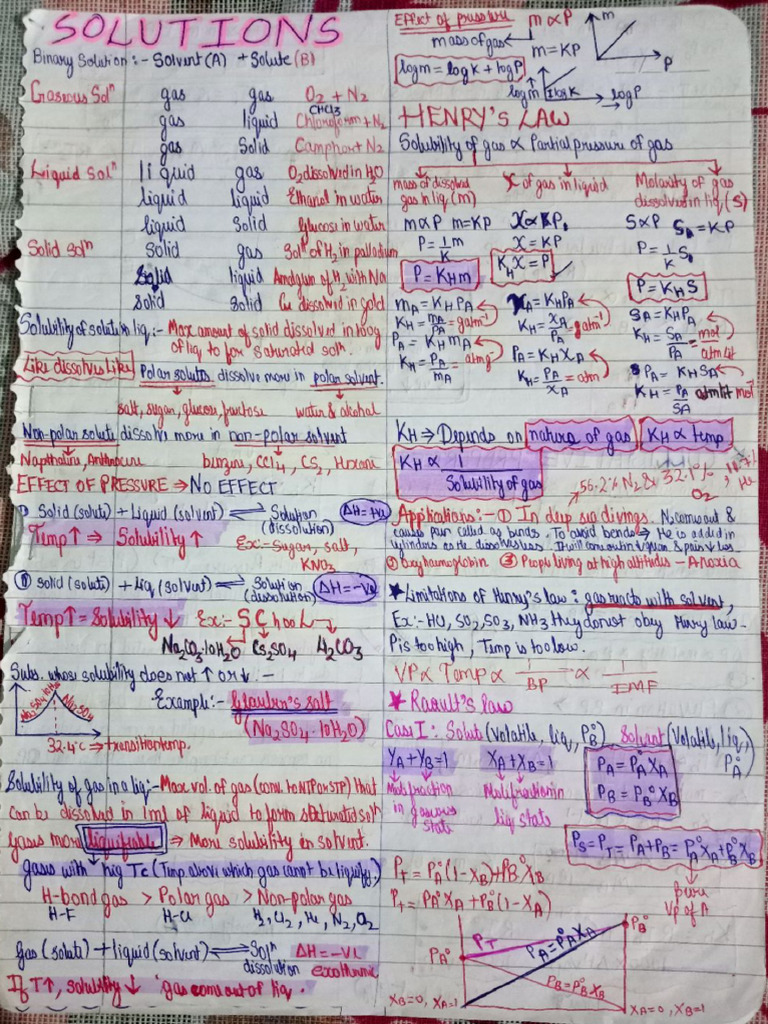 SOLUTIONS
Binary Solution :- Solvent(A) + Solute(B)
Gaseous Solⁿ gas gas O₂ + N₂
CHCl₃
gas liquid Chloroform + N₂
gas Solid Camphor + N₂
Liquid Solⁿ liquid gas O₂ dissolved in H₂O
liquid liquid Ethanol in water
liquid Solid Glucose in water
Solid Solⁿ Solid gas Solⁿ of H₂ in palladium
Solid liquid Amalgum of H₂ with Na
Solid Solid Cu dissolved in gold
Solubility of solute in liq :- Max amount of solid dissolved in 100g
of liq to for saturated soln.
Like dissolves Like Polar solutes dissolve more in polar solvent.
salt, sugar, glucose, fructose water & alcohol
Non-polar solute dissolve more in non-polar solvent
Napthalene, Anthracene benzene, CCl₄, CS₂, Hexane
EFFECT OF PRESSURE ⇒ NO EFFECT
① Solid (solute) + Liquid (solvent) ⇌ Solution ΔH = +ve
(dissolution)
Temp↑ ⇒ Solubility ↑ Ex:- Sugar, salt,
KNO₃
② Solid (solute) + liq (solvent) ⇌ Solution ΔH = -ve
(dissolution)
Temp↑ = Solubility ↓ Ex:- SChooL
Na₂CO₃·10H₂O Cs₂SO₄ Li₂CO₃
Subs. whose solubility does not ↑ or ↓ :-
Na₂SO₄·10H₂O Na₂SO₄
Example:- Glauber's salt
(Na₂SO₄·10H₂O)
32.4°C ⇒ transition temp.
Solubility of gas in a liq :- Max vol. of gas (conv. to NTP or STP) that
can be dissolved in 1ml of liquid to form saturated soln
gases more liquifiable ⇒ More solubility in solvent.
gases with hig Tc (Temp above which gas cannot be liquify)
H-bond gas > Polar gas > Non-polar gas
H-F H-Cl H₂, Cl₂, He, N₂, O₂
Gas (solute) + liquid (solvent) ⇌ Solⁿ ΔH = -ve
dissolution exothermic
If T↑, solubility ↓ gas comes out of liq.
Effect of pressure m ∝ P
mass of gas m = KP
m P
log m = log K + log P
log m log K log P
HENRY'S LAW
Solubility of gas ∝ Partial pressure of gas
mass of dissolved gas in liq (m) X of gas in liquid Molarity of gas dissolved in liq (S)
m∝P m=KP X ∝ P S∝P S = KP
P = 1/K m X = KP P = 1/K S
P = K_H m K_H X = P P = K_H S
m_A = K_H P_A X_A = K_H P_A S_A = K_H P_A
K_H = m_A/P_A = g atm⁻¹ K_H = X_A/P_A = atm⁻¹ K_H = S_A/P_A = mol/atm lit
P_A = K_H m_A P_A = K_H X_A P_A = K_H S_A
K_H = P_A/m_A = atm g⁻¹ K_H = P_A/X_A = atm K_H = P_A/S_A atm lit mol⁻¹
K_H ⇒ Depends on nature of gas K_H ∝ temp
K_H ∝ 1/Solubility of gas
56.2% N₂ & 32.1% O₂, He
Applications:- ① In deep sea divings. N₂ comes out &
cause pain called as bends. To avoid bends → He is added in
cylinders as He dissolves less.
② Oxyhaemoglobin ③ People living at high altitudes - Anoxia
★ Limitations of Henry's law : gas reacts with solvent,
Ex:- HCl, SO₂, SO₃, NH₃ they do not obey Henry law.
P is too high, Temp is too low.
VP ∝ Temp ∝ 1/BP ∝ 1/IMF
★ Raoult's law
Case I: Solute (volatile, liq, P°_B) Solvent (Volatile, liq, P°_A)
Y_A + Y_B = 1 X_A + X_B = 1 P_A = P°_A X_A
P_B = P°_B X_B
Molefraction in gaseous state Molefraction in liq state
P_S = P_T = P_A + P_B = P°_A X_A + P°_B X_B
pure
Vp of A
P_T = P°_A (1 - X_B) + P°_B X_B
P_T = P°_A X_A + P°_B (1 - X_A)
P_A° P_T P_A = P°_A X_A P_B°
P_B = P°_B X_B
X_B = 0, X_A = 1 X_A = 0, X_B = 1